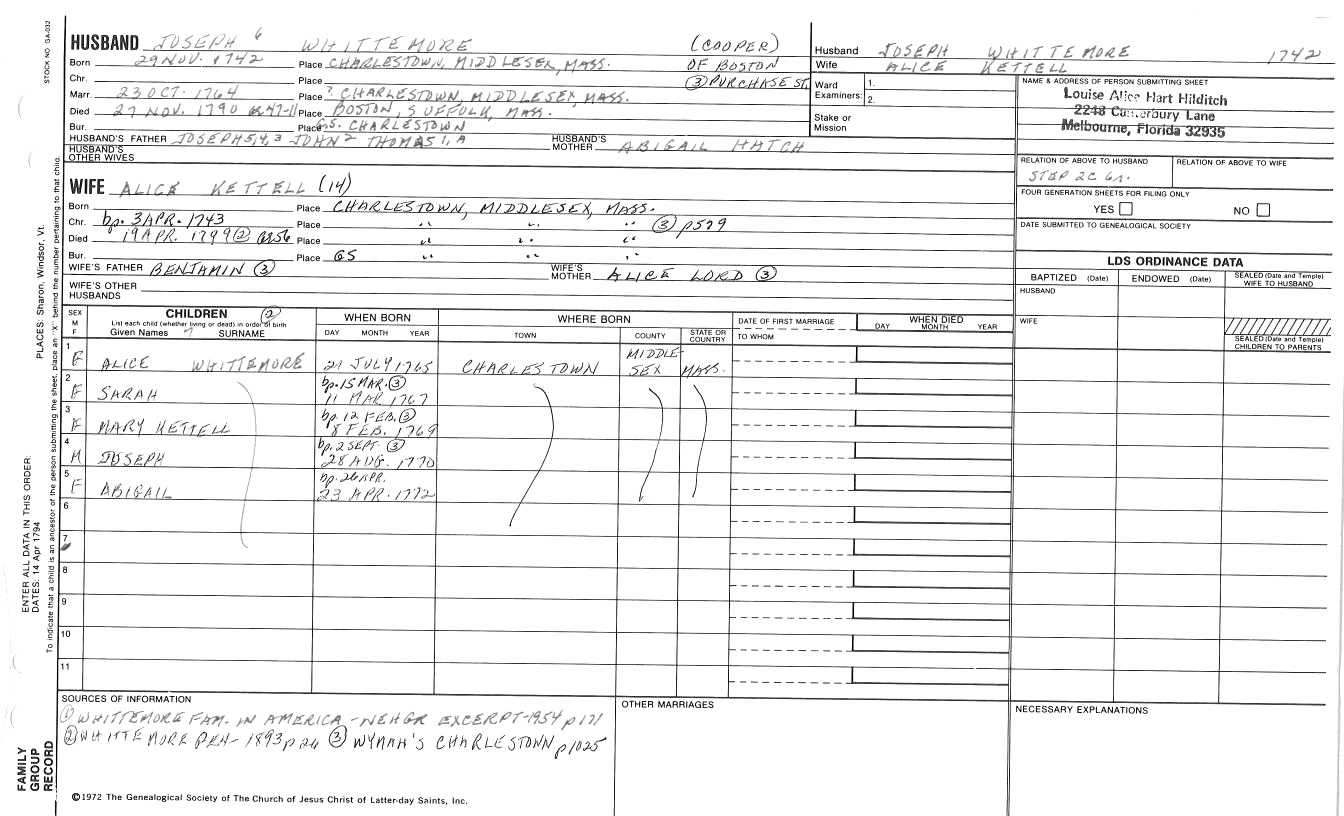 STOCK NO. GA-032
HUSBAND JOSEPH 6 WHITTEMORE (COOPER)
Born 29 NOV. 1742 Place CHARLESTOWN, MIDDLESEX, MASS. OF BOSTON
Chr. Place ③ PURCHASE ST.
Marr. 23 OCT. 1764 Place ? CHARLESTOWN, MIDDLESEX MASS.
Died 27 NOV. 1790 Place BOSTON, SUFFOLK, MASS.
Bur. Place G.S. CHARLESTOWN
HUSBAND'S FATHER JOSEPH 5,4,3 JOHN 2 THOMAS 1, A HUSBAND'S MOTHER ABIGAIL HATCH
HUSBAND'S OTHER WIVES
WIFE ALICE KETTELL (14)
Born Place CHARLESTOWN, MIDDLESEX, MASS.
Chr. bp. 3 APR. 1743 Place " " " ③ p579
Died 19 APR. 1799 ② Place " " "
Bur. Place GS " " "
WIFE'S FATHER BENJAMIN ③ WIFE'S MOTHER ALICE LORD ③
WIFE'S OTHER HUSBANDS
Husband JOSEPH WHITTEMORE 1742
Wife ALICE KETTELL
Ward Examiners: 1. 2.
Stake or Mission
NAME & ADDRESS OF PERSON SUBMITTING SHEET
Louise Alice Hart Hilditch
2248 Canterbury Lane
Melbourne, Florida 32935
RELATION OF ABOVE TO HUSBAND RELATION OF ABOVE TO WIFE
STEP 2C 6R.
FOUR GENERATION SHEETS FOR FILING ONLY
YES NO
DATE SUBMITTED TO GENEALOGICAL SOCIETY
LDS ORDINANCE DATA
BAPTIZED (Date) ENDOWED (Date) SEALED (Date and Temple) WIFE TO HUSBAND
HUSBAND
WIFE
SEALED (Date and Temple) CHILDREN TO PARENTS
SEX M F CHILDREN ② WHEN BORN WHERE BORN DATE OF FIRST MARRIAGE WHEN DIED
List each child (whether living or dead) in order of birth
Given Names 7 SURNAME DAY MONTH YEAR TOWN COUNTY STATE OR COUNTRY TO WHOM DAY MONTH YEAR
1 F ALICE WHITTEMORE 27 JULY 1765 CHARLESTOWN MIDDLE-SEX MASS.
2 F SARAH bp. 15 MAR. ③ 11 MAR 1767
3 F MARY KETTELL bp. 12 FEB. ③ 8 FEB. 1769
4 M JOSEPH bp. 2 SEPT ③ 28 AUG. 1770
5 F ABIGAIL bp. 26 APR. 23 APR. 1772
6
7
8
9
10
11
SOURCES OF INFORMATION
① WHITTEMORE FAM. IN AMERICA - NEHGR EXCERPT-1954 p171
② WHITTEMORE GEN- 1893 p26 ③ WYMAN'S CHARLESTOWN p1025
OTHER MARRIAGES
NECESSARY EXPLANATIONS
©1972 The Genealogical Society of The Church of Jesus Christ of Latter-day Saints, Inc.
FAMILY GROUP RECORD
ENTER ALL DATA IN THIS ORDER:
DATES: 14 Apr 1794
PLACES: Sharon, Windsor, Vt.
To indicate that a child is an ancestor of the person submitting the sheet, place an "X" behind the number pertaining to that child.